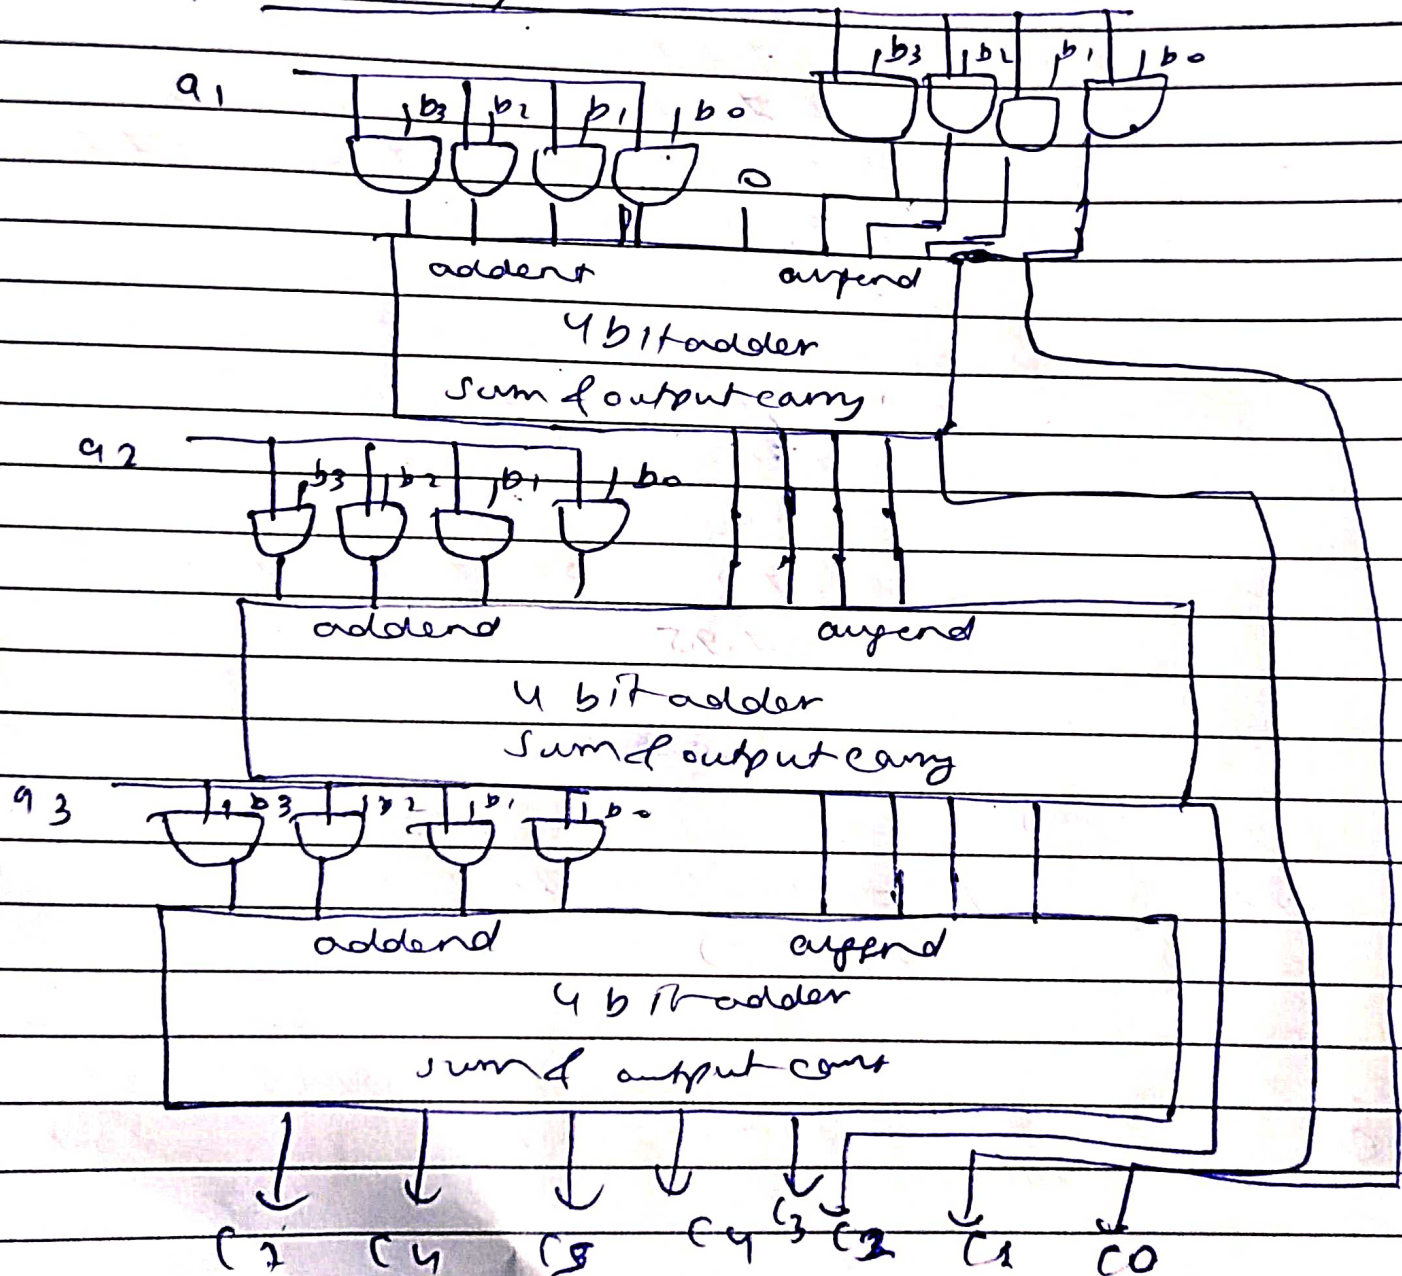 b3 b2 b1 b0
a1
b3 b2 b1 b0
0
addent augend
4 bit adder
sum & output carry
a2
b3 b2 b1 b0
addend augend
4 bit adder
sum & output carry
a3
b3 b2 b1 b0
addend augend
4 bit adder
sum & output
C7 C4 C4 C3 C1 C0